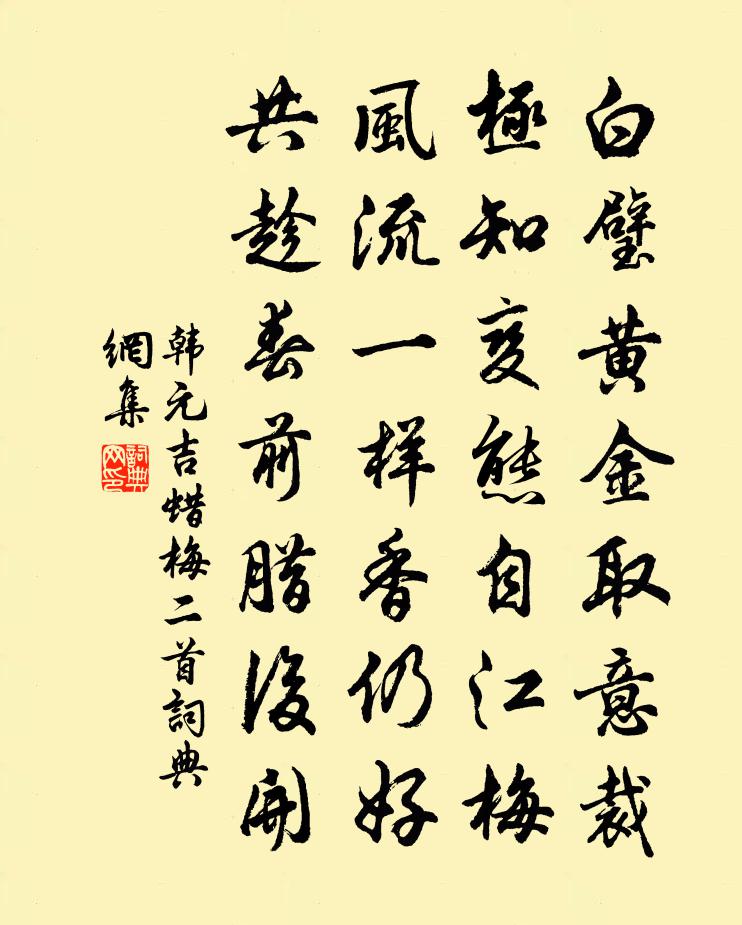 白璧黄金取意裁
極知変態自江梅
風流一样香仍好
共趁春前腊後开
韩元吉蜡梅二首詞典
網集
詞典网印